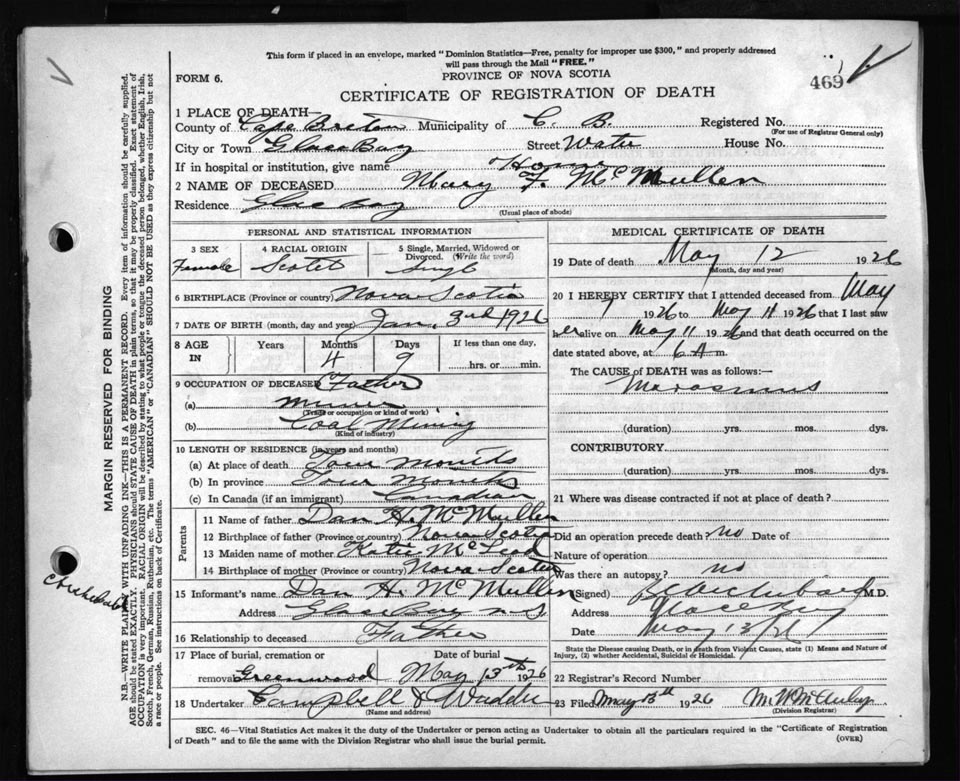 This form if placed in an envelope, marked "Dominion Statistics—Free, penalty for improper use $300," and properly addressed
will pass through the Mail "FREE."
PROVINCE OF NOVA SCOTIA
FORM 6.
469
CERTIFICATE OF REGISTRATION OF DEATH
1 PLACE OF DEATH—
County of Cape Breton Municipality of C. B. Registered No.
(For use of Registrar General only)
City or Town Glace Bay Street Water House No.
If in hospital or institution, give name Home
2 NAME OF DECEASED Mary F. McMullen
Residence Glace Bay
(Usual place of abode)
PERSONAL AND STATISTICAL INFORMATION
3 SEX 4 RACIAL ORIGIN 5 Single, Married, Widowed or Divorced. (Write the word)
Female Scotch Single
6 BIRTHPLACE (Province or country) Nova Scotia
7 DATE OF BIRTH (month, day and year) Jan. 3rd 1926
8 AGE IN Years Months Days If less than one day,
4 9 hrs. or min.
9 OCCUPATION OF DECEASED Father
(a) miner
(Trade or occupation or kind of work)
(b) Coal Mining
(Kind of industry)
10 LENGTH OF RESIDENCE (in years and months)
(a) At place of death Four months
(b) In province Four Months
(c) In Canada (if an immigrant) Canadian
Parents
11 Name of father Dan H. McMullen
12 Birthplace of father (Province or country) Nova Scotia
13 Maiden name of mother Katie McLeod
14 Birthplace of mother (Province or country) Nova Scotia
15 Informant's name Dan H. McMullen
Address Glace Bay N-S
16 Relationship to deceased Father
17 Place of burial, cremation or removal Greenwood Date of burial May 13th 1926
18 Undertaker Campbell &
(Name and address)
MEDICAL CERTIFICATE OF DEATH
19 Date of death May 12 1926
(Month, day and year)
20 I HEREBY CERTIFY that I attended deceased from May
7 1926 to May 11 1926 that I last saw
her alive on May 11 1926 and that death occurred on
date stated above, at 6 A m.
The CAUSE of DEATH was as follows:—
Marasmus
(duration) yrs. mos. dys.
CONTRIBUTORY
(duration) yrs. mos. dys.
21 Where was disease contracted if not at place of death?
Did an operation precede death? no Date of
Nature of operation
Was there an autopsy? no
(Signed) M.D.
Address Glace Bay
Date May 13/26
State the Disease causing Death, or in death from Violent Causes, state (1) Means and Nature of
Injury, (2) whether Accidental, Suicidal or Homicidal.
22 Registrar's Record Number
23 Filed May 13th 1926
(Division Registrar)
SEC. 46—Vital Statistics Act makes it the duty of the Undertaker or person acting as Undertaker to obtain all the particulars required in the "Certificate of Registration
of Death" and to file the same with the Division Registrar who shall issue the burial permit.
(OVER)
MARGIN RESERVED FOR BINDING
N.B.—WRITE PLAINLY WITH UNFADING INK—THIS IS A PERMANENT RECORD. Every item of information should be carefully supplied.
AGE should be stated EXACTLY. PHYSICIANS should STATE CAUSE OF DEATH in plain terms, so that it may be properly classified. Exact statement of
OCCUPATION is very important. RACIAL ORIGIN will be described by stating to what people or tongue the deceased person belonged, whether English, Irish,
Scotch, French, German, Russian, Ruthenian, etc. The terms "AMERICAN" or "CANADIAN" SHOULD NOT BE USED as they express citizenship but not
a race or people. See instructions on back of Certificate.